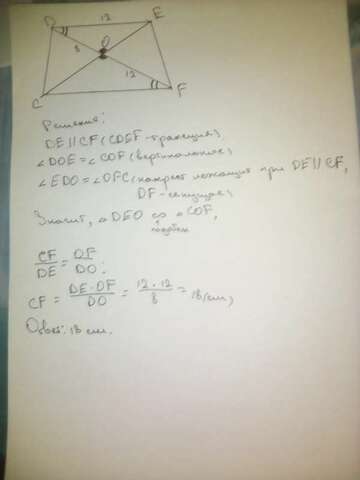 12
D E
O
8
12
C F
Решение:
DE∥CF (CDEF - трапеция)
∠DOE = ∠COF (вертикальные)
∠EDO = ∠OFC (накрест лежащие при DE∥CF,
DF - секущая)
Значит, △DEO ∾ △COF,
подобен
CF/DE = OF/DO;
CF = DE·OF/DO = 12·12/8 = 18 (см)
Ответ: 18 см.